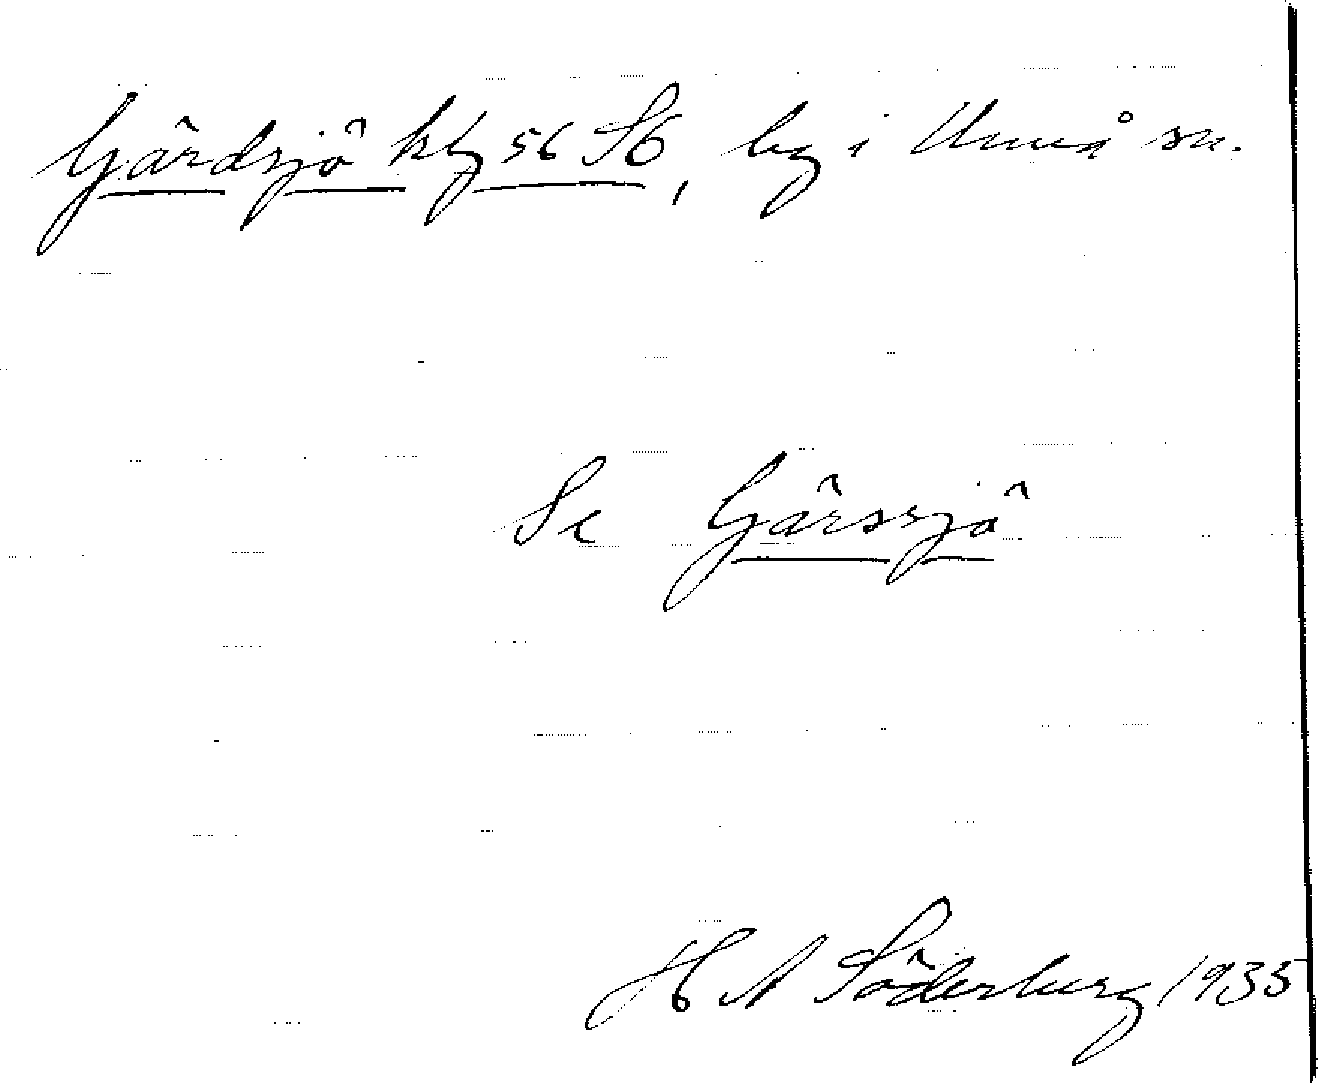 Gärdsjö kbg 56 S6, by i Umeå sn.
Se Gärssjö
H A Söderberg 1935